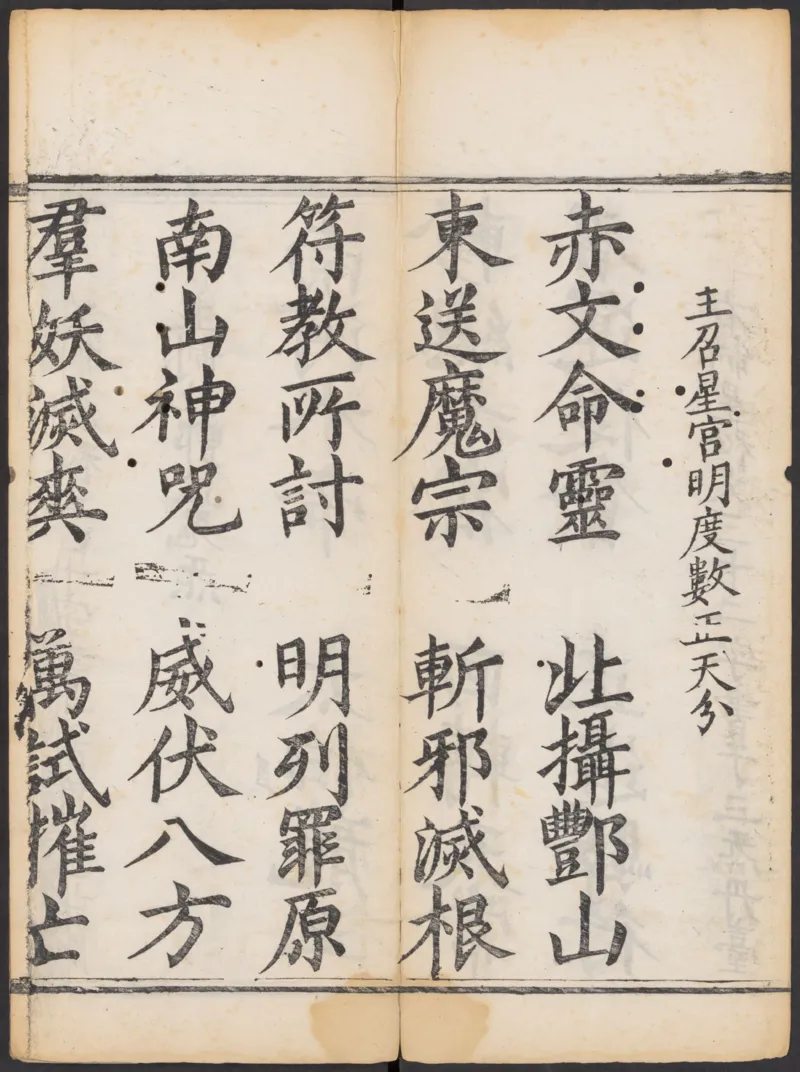 主召星宮明度數正天分
赤文命靈　北攝酆山
東送魔宗　斬邪滅根
符教所討　明列罪原
南山神咒　威伏八方
羣妖滅爽　萬試摧亡